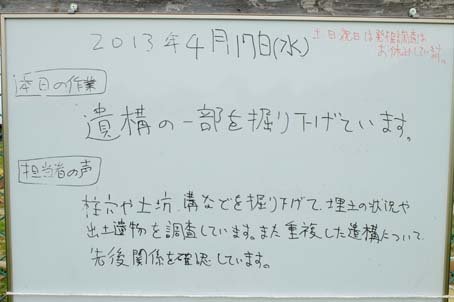 2013年4月17日(水)
土日祝日は発掘調査は
お休みしています。
本日の作業
遺構の一部を掘り下げています。
担当者の声
柱穴や土坑、溝などを掘り下げて、埋土の状況や
出土遺物を調査しています。また重複した遺構について
先後関係を確認しています。